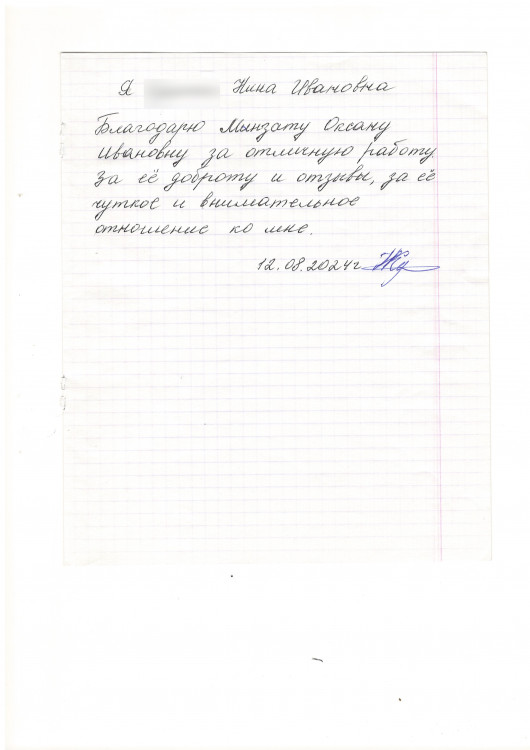 Я Нина Ивановна
Благодарю Мынзату Оксану
Ивановну за отличную работу
За её доброту и отзывы, за её
чуткое и внимательное
отношение ко мне.
12.08.2024г